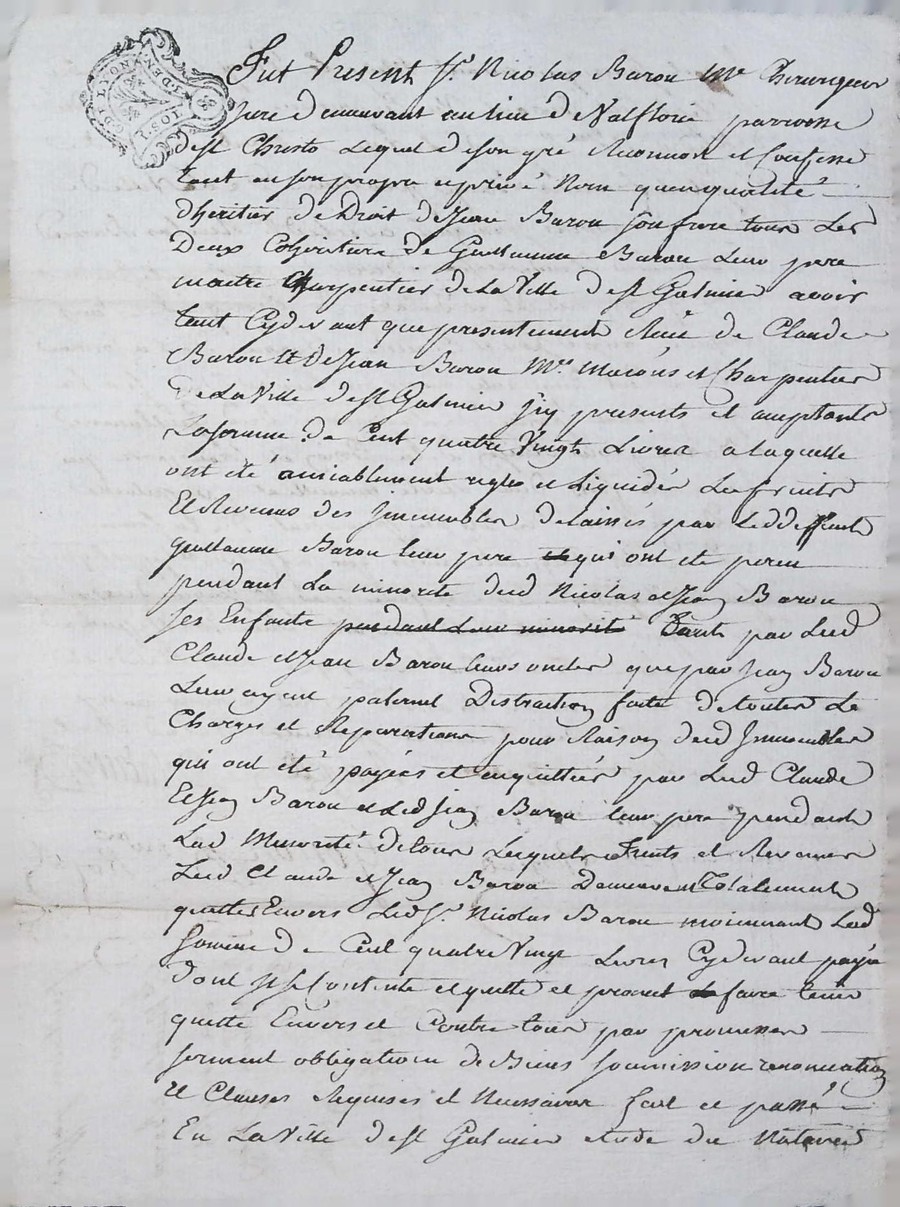 Fut Present Sr. Nicolas Barou Me Chirurgien
jure demeurant au lieu de Valfloris parroisse
de st Christo lequel de son gré Reconnoit et Confesse
tant en son propre et privé Nom qu'en qualité
dheritier de Droit de Jean Barou son frere tous Les
Deux Coheritiers de Guillaume Barou Leur pere
maitre Charpentier de La Ville de st Galmier avoir
tant Cydevant que presentement Receu de Claude
Barou Et de Jean Barou Mes. Macons et Charpentier
de La Ville de st Galmier jcy presents et acceptants
La somme de Cent quatre Vingts Livres a laquelle
ont eté amiablement reglés et Liquidés Les fruits
Et Revenus des jmmeubles delaissés par Led deffunt
guillaume Barou leur pere qui ont eté perceu
pendant La minorité dud Nicolas et Jean Barou
ses Enfants pendant Leur minorité Tant par Led
Claude et Jean Barou leurs oncles que par Jean Barou
Leur ayeul paternel Distraction faite de toutes Le
Charges et Reparations pour Raison desd Jmmeubles
qui ont eté payées et acquittées par Led Claude
Et Jean Barou et Led Jean Barou leur pere pendant
Lad Minorité de tous Lesquels Fruits et Revenus
Led Claude et Jean Barou Demeurent Totalement
quittes Envers Led Sr. Nicolas Barou moienant Lad
somme de Cent quatre Vingt Livres Cydevant payé
dont jl se Contente et quitte et promet faire tenir
quitte Envers et Contre tous par promesses
serment obligation de Biens soumission renonciation
et Clauses Requises et Necessaires fait et passé
En La Ville de st Galmier etude du Notaire